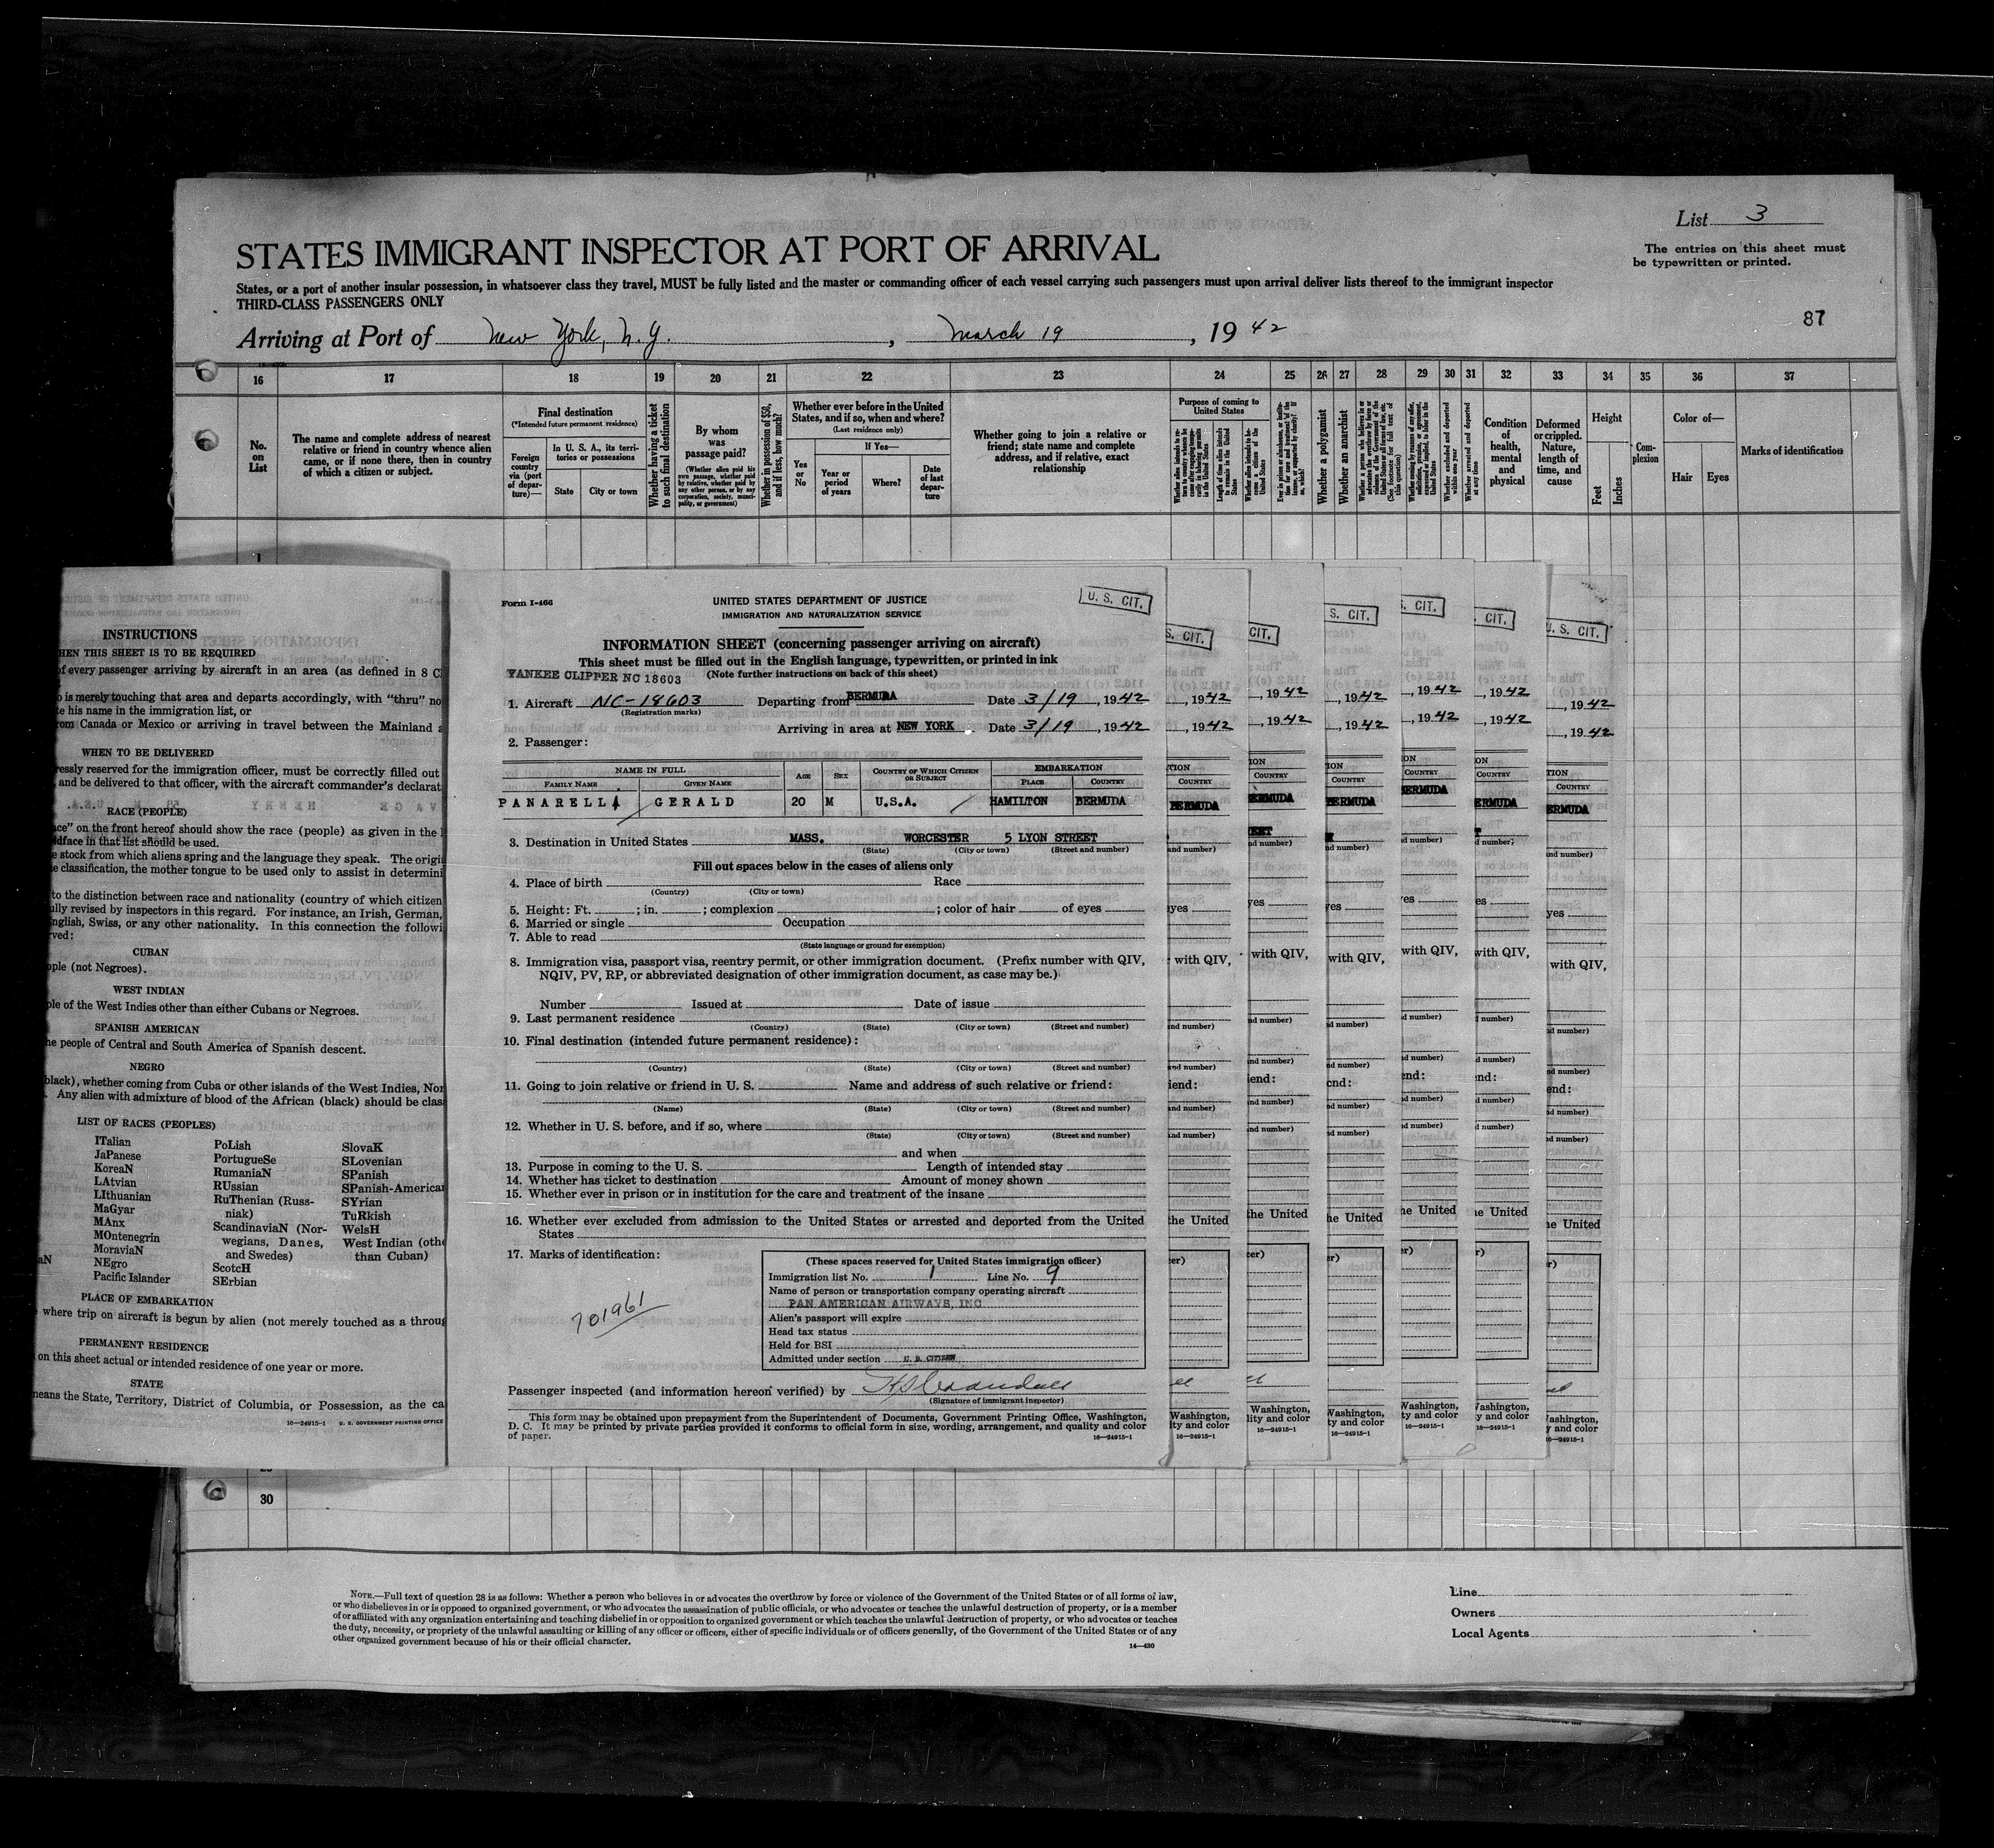 List 3
STATES IMMIGRANT INSPECTOR AT PORT OF ARRIVAL
The entries on this sheet must
be typewritten or printed.
States, or a port of another insular possession, in whatsoever class they travel, MUST be fully listed and the master or commanding officer of each vessel carrying such passengers must upon arrival deliver lists thereof to the immigrant inspector
THIRD-CLASS PASSENGERS ONLY
87
Arriving at Port of New York, N.Y., March 19, 1942
16 17 18 19 20 21 22 23 24 25 26 27 28 29 30 31 32 33 34 35 36 37
No. on List
The name and complete address of nearest
relative or friend in country whence alien
came, or if none there, then in country
of which a citizen or subject.
Final destination
(*Intended future permanent residence)
Foreign country via (port of departure)—
In U. S. A., its territories or possessions
State
City or town
Whether having a ticket to such final destination
By whom was passage paid?
(Whether alien paid his own passage, whether paid by relative, whether paid by any other person, or by any corporation, society, municipality, or government)
Whether in possession of $50, and if less, how much?
Whether ever before in the United States, and if so, when and where?
(Last residence only)
Yes or No
If Yes—
Year or period of years
Where?
Date of last departure
Whether going to join a relative or
friend; state name and complete
address, and if relative, exact
relationship
Purpose of coming to United States
Whether a polygamist
Whether an anarchist
Whether arrested and deported at any time
Condition of health, mental and physical
Deformed or crippled. Nature, length of time, and cause
Height
Feet
Inches
Complexion
Color of—
Hair
Eyes
Marks of identification
INSTRUCTIONS
HEN THIS SHEET IS TO BE REQUIRED
of every passenger arriving by aircraft in an area (as defined in 8 C
o is merely touching that area and departs accordingly, with "thru" no
te his name in the immigration list, or
rom Canada or Mexico or arriving in travel between the Mainland a
WHEN TO BE DELIVERED
ressly reserved for the immigration officer, must be correctly filled out
and be delivered to that officer, with the aircraft commander's declarat
RACE (PEOPLE)
ace" on the front hereof should show the race (people) as given in the l
ldface in that list should be used.
e stock from which aliens spring and the language they speak. The origi
e classification, the mother tongue to be used only to assist in determini
to the distinction between race and nationality (country of which citizen
ully revised by inspectors in this regard. For instance, an Irish, German,
nglish, Swiss, or any other nationality. In this connection the followi
ved:
CUBAN
ople (not Negroes).
WEST INDIAN
ple of the West Indies other than either Cubans or Negroes.
SPANISH AMERICAN
he people of Central and South America of Spanish descent.
NEGRO
black), whether coming from Cuba or other islands of the West Indies, Nor
. Any alien with admixture of blood of the African (black) should be clas
LIST OF RACES (PEOPLES)
ITalian
JaPanese
KoreaN
LAtvian
LIthuanian
MaGyar
MAnx
MOntenegrin
MoraviaN
NEgro
Pacific Islander
PoLish
PortugueSe
RumaniaN
RUssian
RuThenian (Russ-
niak)
ScandinaviaN (Nor-
wegians, Danes,
and Swedes)
ScotcH
SErbian
SlovaK
SLovenian
SPanish
SPanish-American
SYrian
TuRkish
WelsH
West Indian (othe
than Cuban)
aN
PLACE OF EMBARKATION
where trip on aircraft is begun by alien (not merely touched as a throug
PERMANENT RESIDENCE
on this sheet actual or intended residence of one year or more.
STATE
means the State, Territory, District of Columbia, or Possession, as the ca
16—24915-1 U. S. GOVERNMENT PRINTING OFFICE
Form I-466
UNITED STATES DEPARTMENT OF JUSTICE
IMMIGRATION AND NATURALIZATION SERVICE
U. S. CIT.
INFORMATION SHEET (concerning passenger arriving on aircraft)
This sheet must be filled out in the English language, typewritten, or printed in ink
YANKEE CLIPPER NC 18603
(Note further instructions on back of this sheet)
1. Aircraft NC-18603 Departing from BERMUDA Date 3/19, 1942
(Registration marks)
Arriving in area at NEW YORK Date 3/19, 1942
2. Passenger:
NAME IN FULL AGE SEX COUNTRY OF WHICH CITIZEN OR SUBJECT EMBARKATION
FAMILY NAME GIVEN NAME PLACE COUNTRY
PANARELLA GERALD 20 M U.S.A. HAMILTON BERMUDA
3. Destination in United States MASS. WORCESTER 5 LYON STREET
(State) (City or town) (Street and number)
Fill out spaces below in the cases of aliens only
4. Place of birth Race
(Country) (City or town)
5. Height: Ft. ; in. ; complexion ; color of hair of eyes
6. Married or single Occupation
7. Able to read
(State language or ground for exemption)
8. Immigration visa, passport visa, reentry permit, or other immigration document. (Prefix number with QIV,
NQIV, PV, RP, or abbreviated designation of other immigration document, as case may be.)
Number Issued at Date of issue
9. Last permanent residence
(Country) (State) (City or town) (Street and number)
10. Final destination (intended future permanent residence):
(Country) (State) (City or town) (Street and number)
11. Going to join relative or friend in U. S. Name and address of such relative or friend:
(Name) (State) (City or town) (Street and number)
12. Whether in U. S. before, and if so, where
(State) (City or town) (Street and number)
and when
13. Purpose in coming to the U. S. Length of intended stay
14. Whether has ticket to destination Amount of money shown
15. Whether ever in prison or in institution for the care and treatment of the insane
16. Whether ever excluded from admission to the United States or arrested and deported from the United
States
17. Marks of identification:
701961
(These spaces reserved for United States immigration officer)
Immigration list No. 1 Line No. 9
Name of person or transportation company operating aircraft
PAN AMERICAN AIRWAYS, INC
Alien's passport will expire
Head tax status
Held for BSI
Admitted under section U. S. CITIZEN
Passenger inspected (and information hereon verified) by
(Signature of immigrant inspector)
This form may be obtained upon prepayment from the Superintendent of Documents, Government Printing Office, Washington,
D. C. It may be printed by private parties provided it conforms to official form in size, wording, arrangement, and quality and color
of paper.
16—24915-1
30
NOTE.—Full text of question 28 is as follows: Whether a person who believes in or advocates the overthrow by force or violence of the Government of the United States or of all forms of law,
or who disbelieves in or is opposed to organized government, or who advocates the assassination of public officials, or who advocates or teaches the unlawful destruction of property, or is a member
of or affiliated with any organization entertaining and teaching disbelief in or opposition to organized government or which teaches the unlawful destruction of property, or who advocates or teaches
the duty, necessity, or propriety of the unlawful assaulting or killing of any officer or officers, either of specific individuals or of officers generally, of the Government of the United States or of any
other organized government because of his or their official character.
14—430
Line
Owners
Local Agents